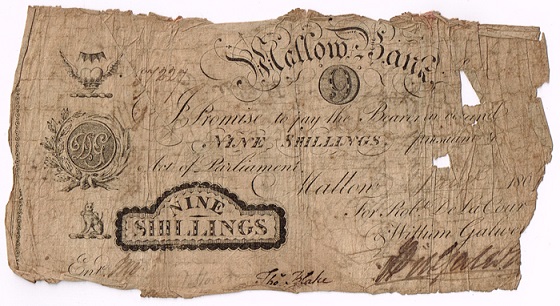 Mallow Bank
9
I Promise to pay the Bearer on demand
NINE SHILLINGS, pursuant to
Act of Parliament.
Mallow 180
For Robt. De La Cour
& William Galwey
NINE
SHILLINGS
Entd.
Thos. Blake